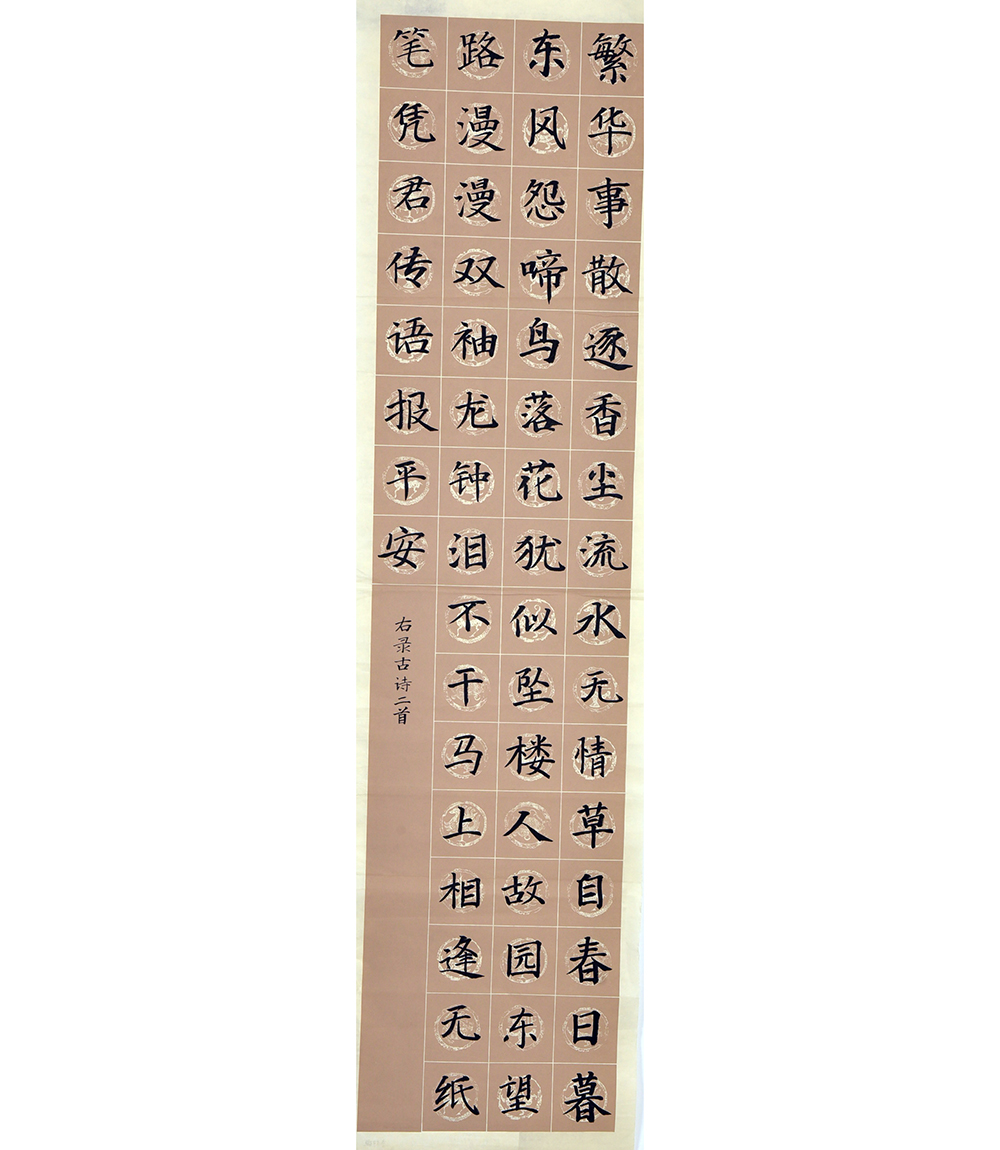 繁华事散逐香尘流水无情草自春日暮
东风怨啼鸟落花犹似坠楼人故园东望
路漫漫双袖龙钟泪不干马上相逢无纸
笔凭君传语报平安
右录古诗二首